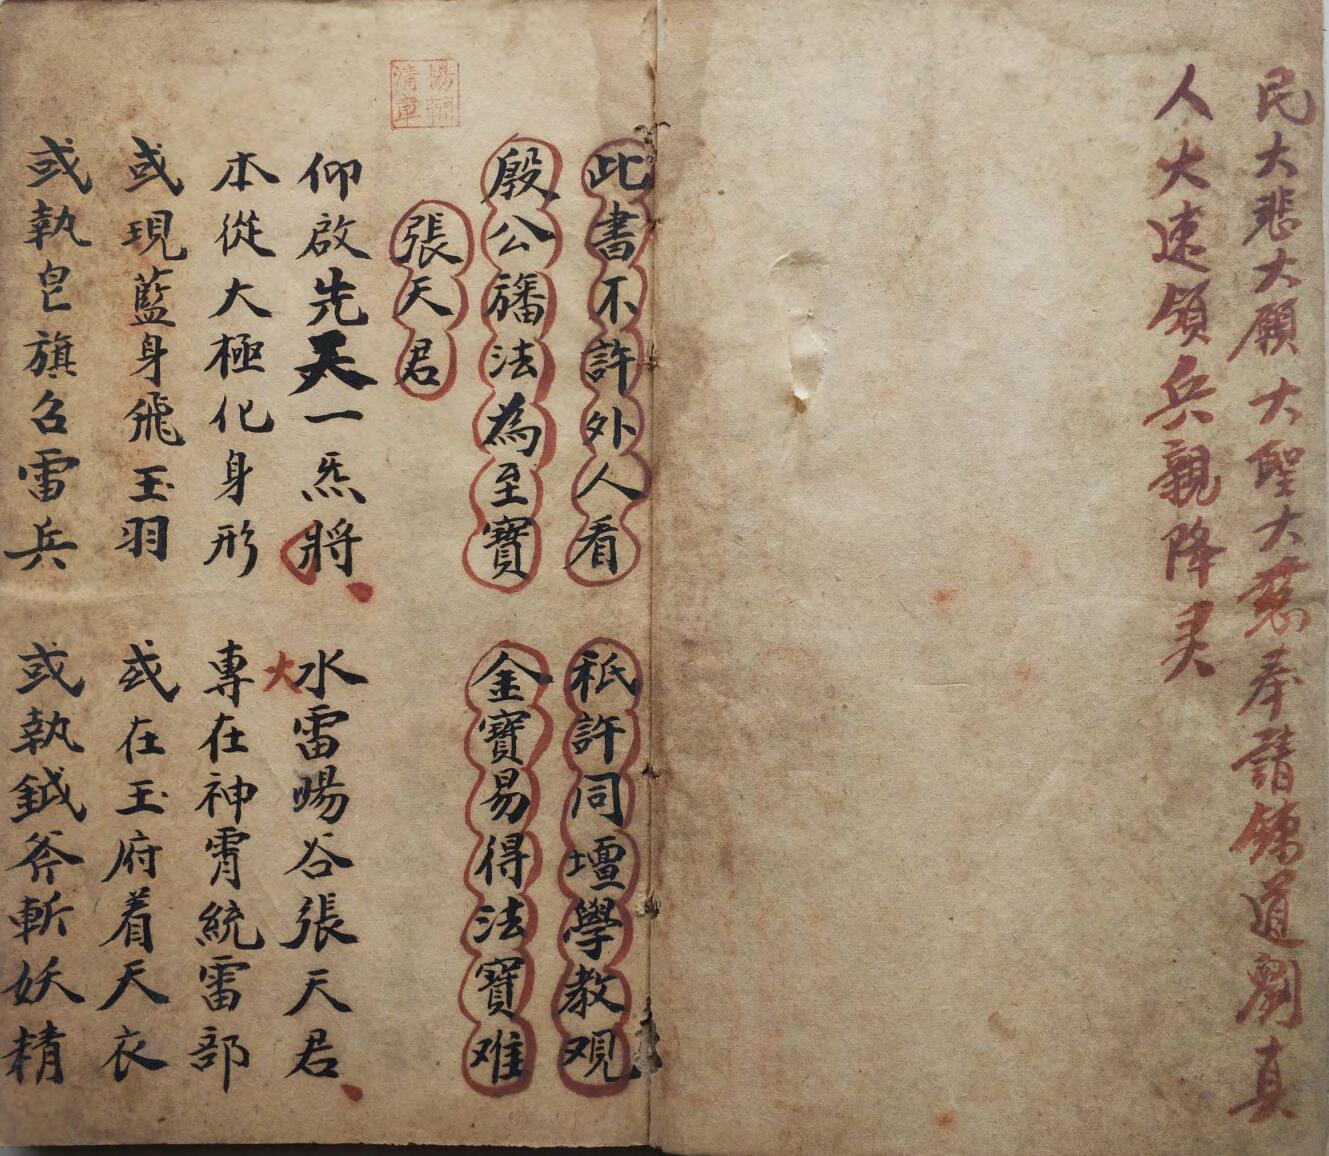 民大悲大願大聖大慈奉請鍊道劉真
人火速領兵親降灵
此書不許外人看　秖許同壇學教观
殷公旛法為至寶　金寶易得法寶难
張天君
仰啟先天一炁將　水雷暘谷張天君
本從大極化身形　專在神霄統雷部
或現藍身飛玉羽　或在玉府着天衣
或執皂旗召雷兵　或執鉞斧斬妖精
大